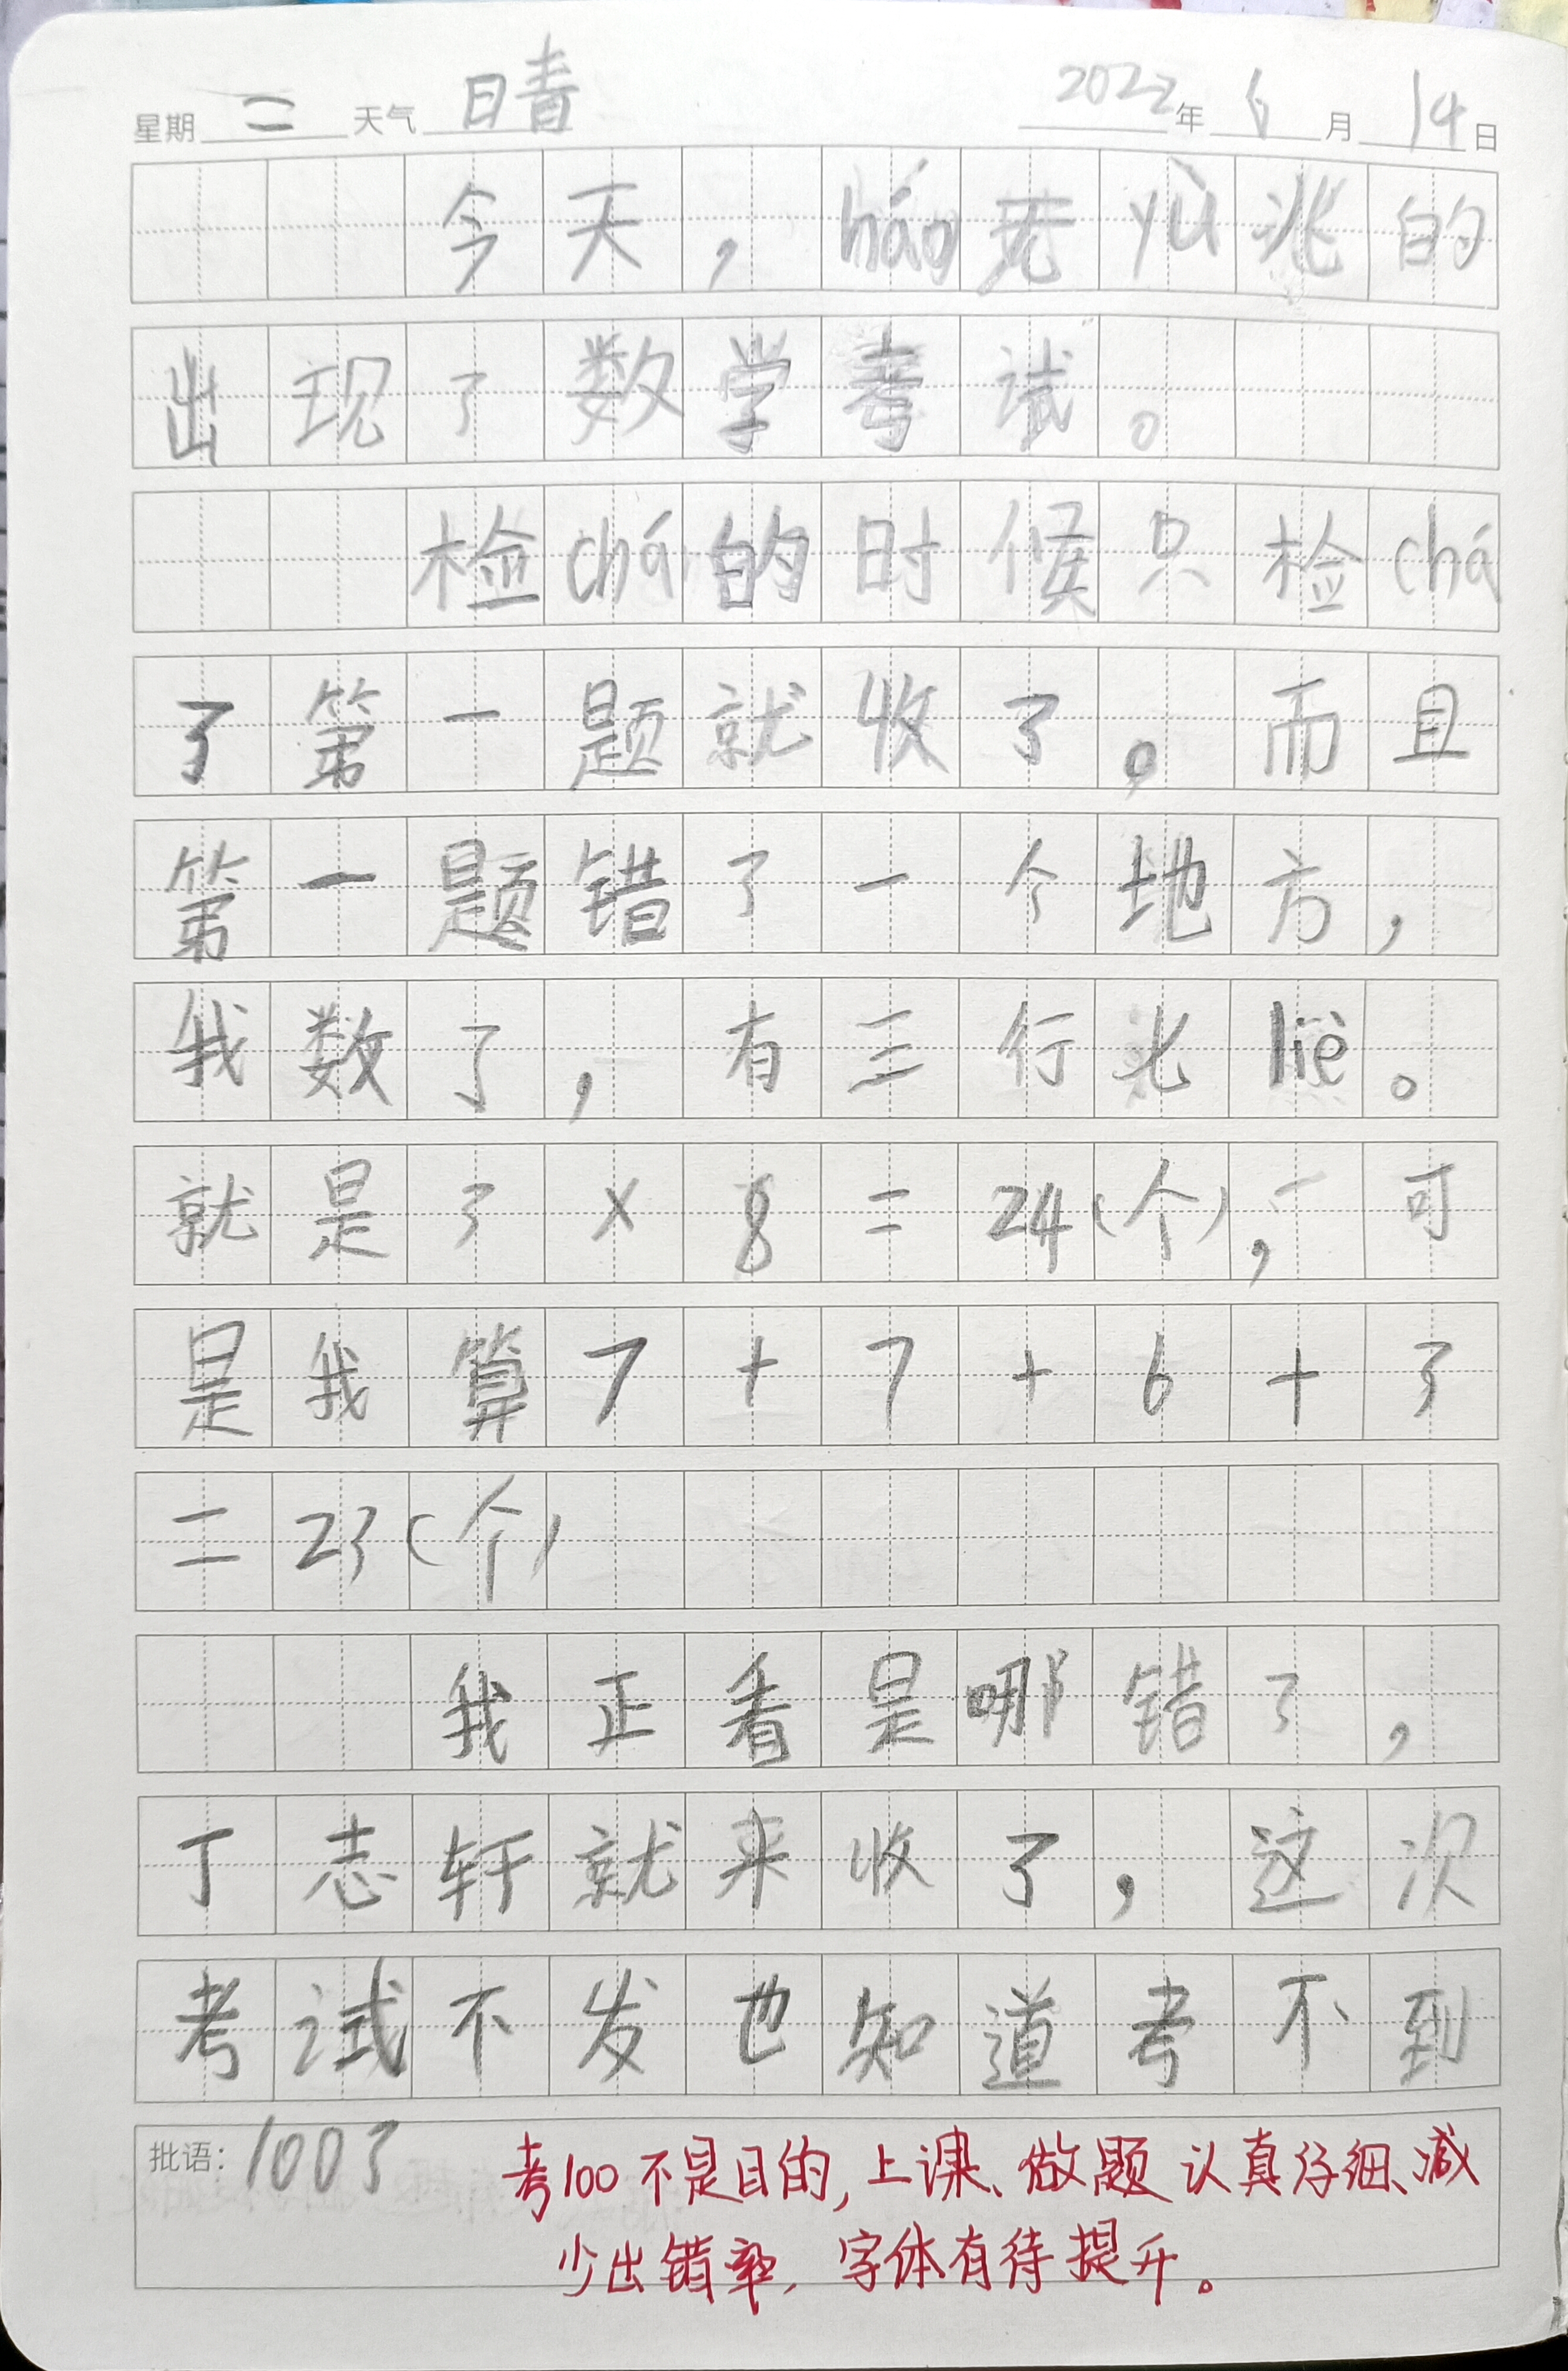 星期 二 天气 晴 2022年 6月 14日
今天，háo无yù兆的
出现了数学考试。
检chá的时候只检chá
了第一题就收了。而且
第一题错了一个地方，
我数了，有三行光liè。
就是3×8=24(个)，可
是我算7+7+6+3
=23(个)
我正看是哪错了，
丁志轩就来收了，这次
考试不发也知道考不到
批语：100了
考100不是目的，上课、做题认真仔细、减
少出错率，字体有待提升。